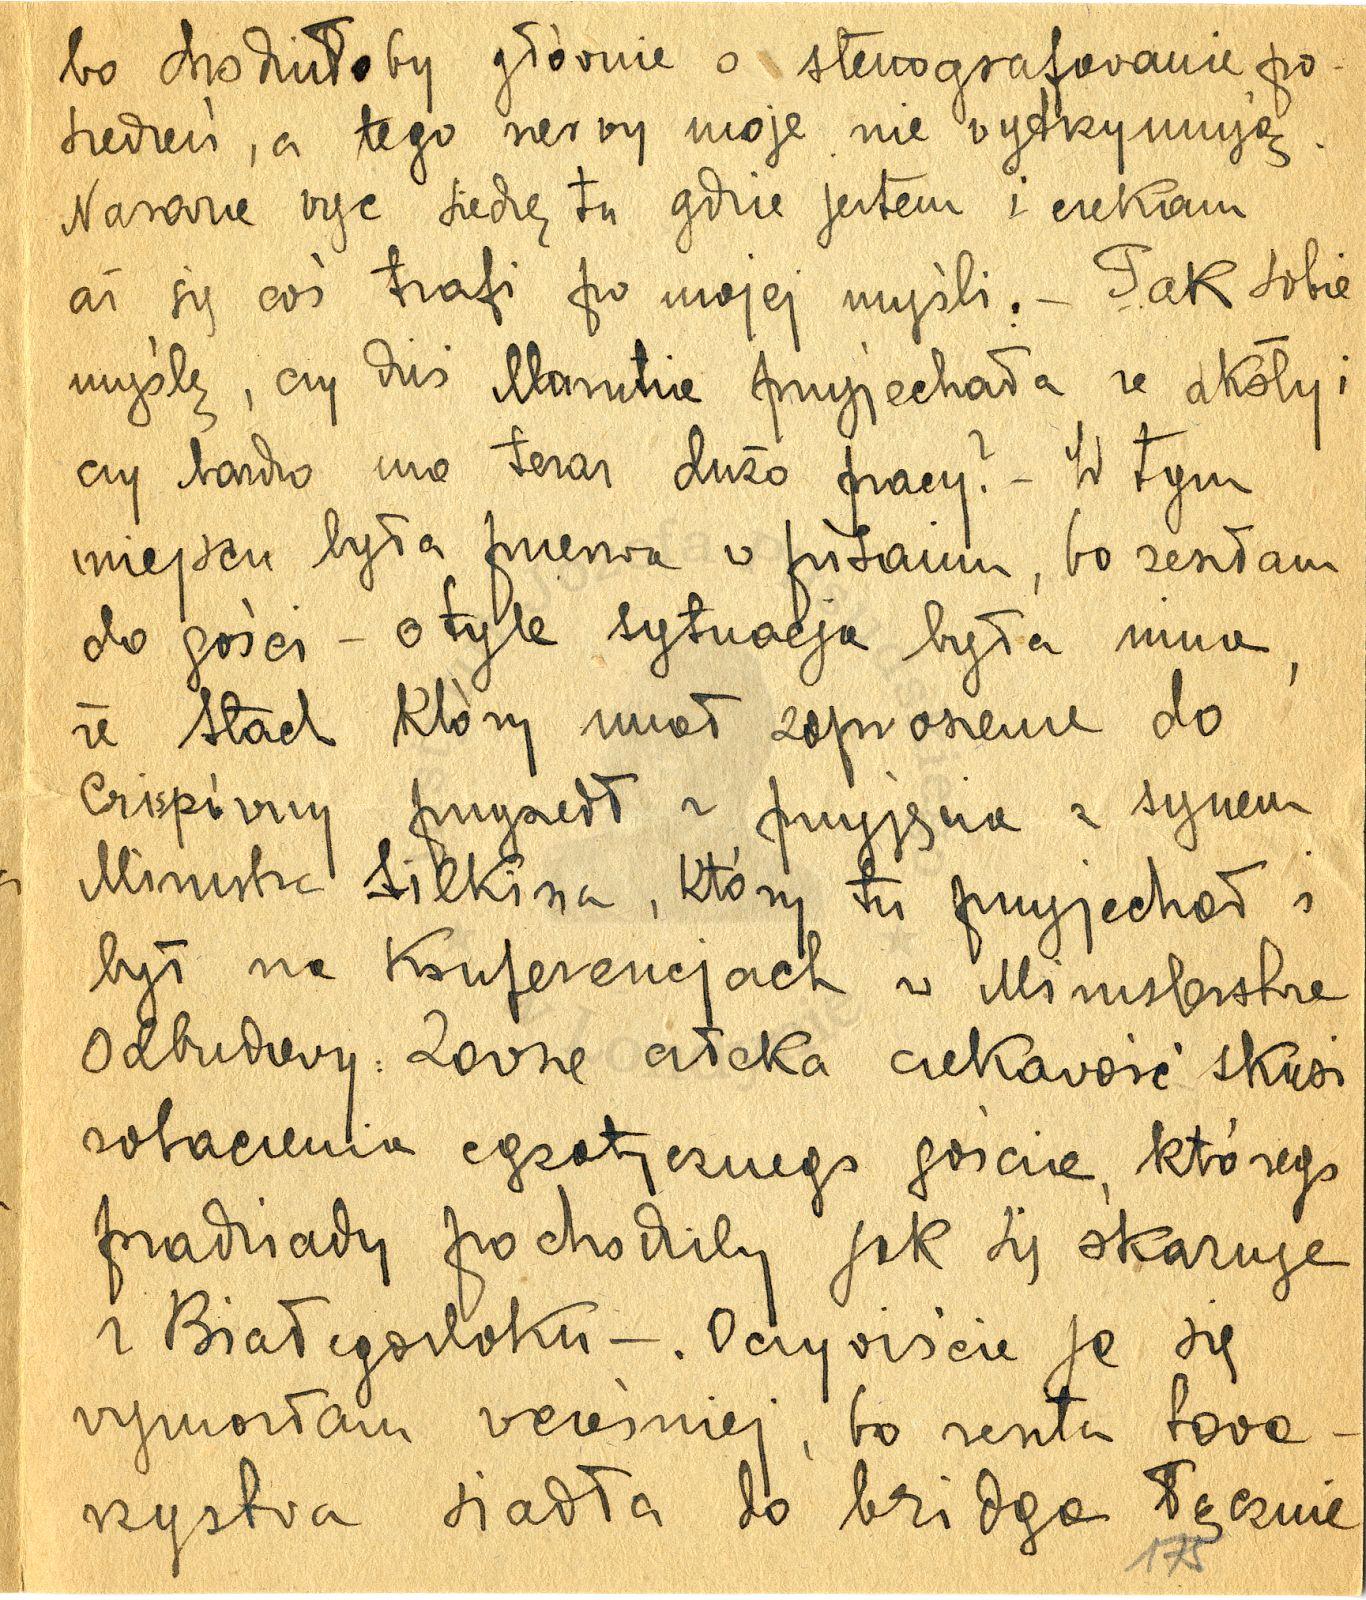 bo chodziłoby głównie o stenografowanie po-
siedzeń, a tego nerwy moje nie wytrzymują.
Narazie więc siedzę tu gdzie jestem i czekam
aż się coś trafi po mojej myśli. – Tak sobie
myślę, czy dziś przyjechała ze szkoły i
czy bardzo ma teraz dużo pracy? – W tym
miejscu była przerwa w pisaniu, bo zeszłam
do gości – o tyle sytuacja była inna,
że Stach który miał zaproszenie do
przyszedł z przyjęcia z synem
Ministra Silkina, który tu przyjechał i
był na Konferencjach w Ministerstwie
Odbudowy. Zawsze człeka ciekawość skusi
zobaczenia egzotycznego gościa, którego
pradziady pochodziły jak się okazuje
z Białegostoku –. Oczywiście ja się
wymogłam wcześniej, bo reszta towa-
rzystwa siadła do bridga łącznie
175